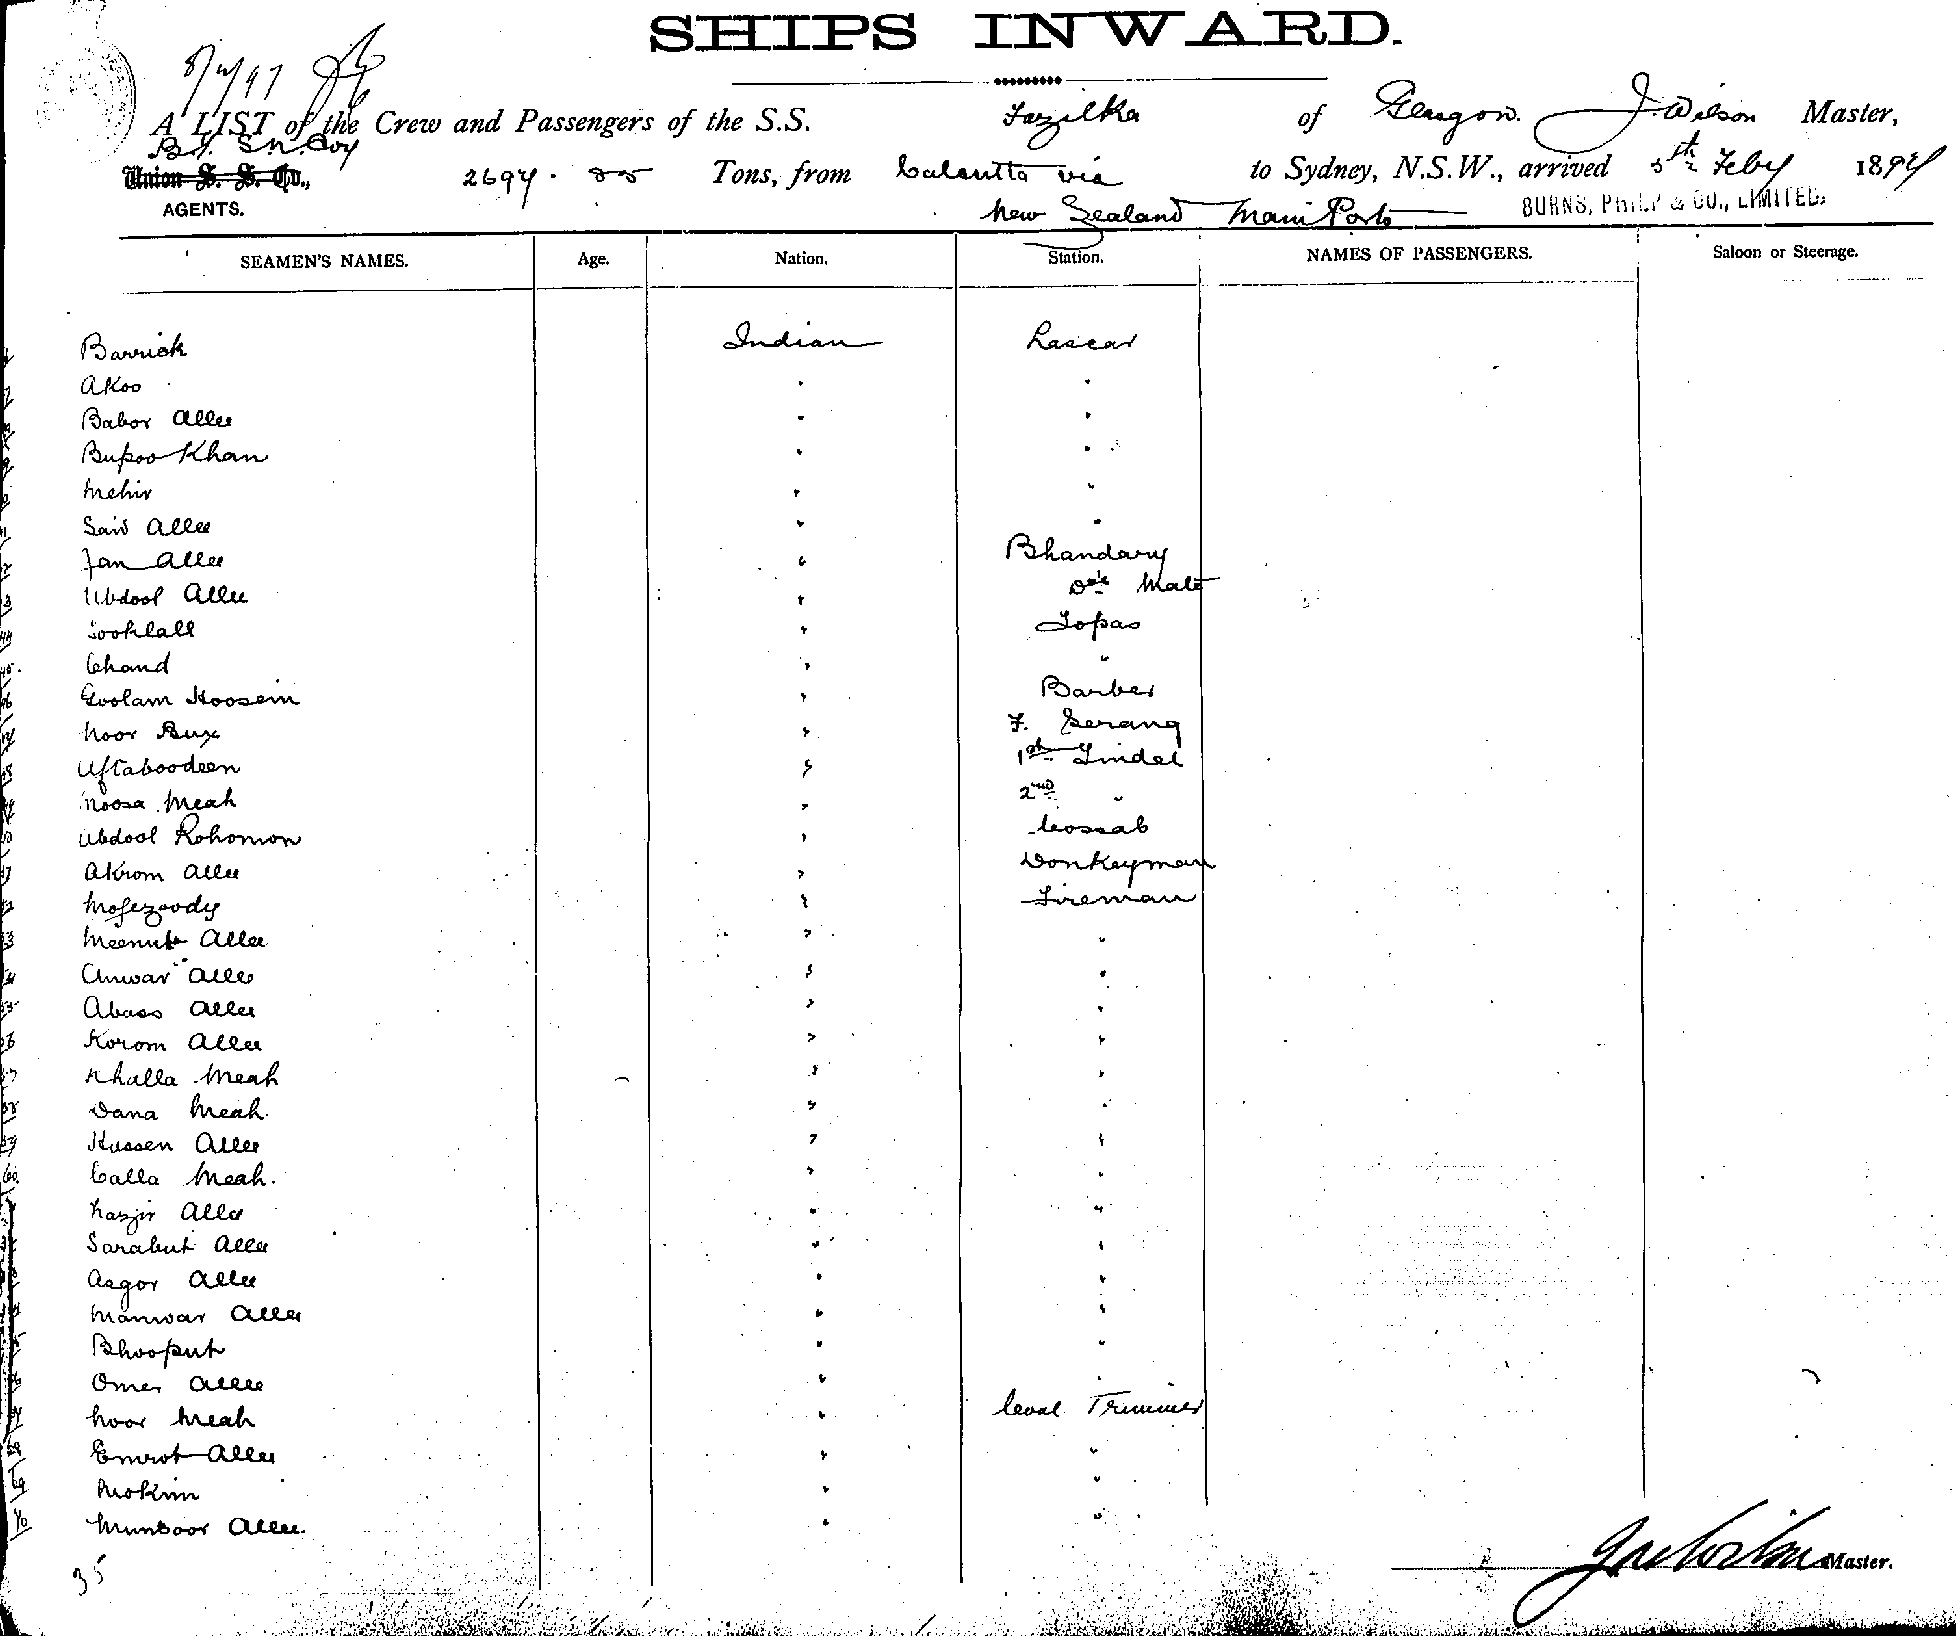 SHIPS INWARD.
A LIST of the Crew and Passengers of the S.S. Fazilka of Glasgow. J. Wilson Master,
B.I. S.N. Coy
Union S. S. Co., 2694. 85 Tons, from Calcutta via to Sydney, N.S.W., arrived 5th Feby 1897
AGENTS. New Zealand Main Ports BURNS, PHILP & CO., LIMITED.
SEAMEN'S NAMES. Age. Nation. Station. NAMES OF PASSENGERS. Saloon or Steerage.
Barrick Indian Lascar
Akoo " "
Babor Allee " "
Bupoo Khan " "
Mehir " "
Said Allee " "
Jan Allee " Bhandary
Ubdool Allee " Do. Mate
Sooklall " Topas
Chand " "
Goolam Hoosein " Barber
Noor Bux " F. Serang
Uftaboodeen " 1st Tindel
Moosa Meah " 2nd "
Ubdool Rohomon " Cossab
Akrom Allee " Donkeyman
Mofezoody " Fireman
Meenut Allee " "
Anwar Allee " "
Abass Allee " "
Korom Allee " "
Khalla Meah " "
Dana Meah. " "
Hussen Allee " "
Calla Meah. " "
Nazir Allee " "
Sarabut Allee " "
Asgor Allee " "
Manwar Allee " "
Bhooput " "
Omer Allee " "
Noor Meah " Coal Trimmer
Emrot Allee " "
Mokim " "
Munsoor Allee. " "
35 Master.